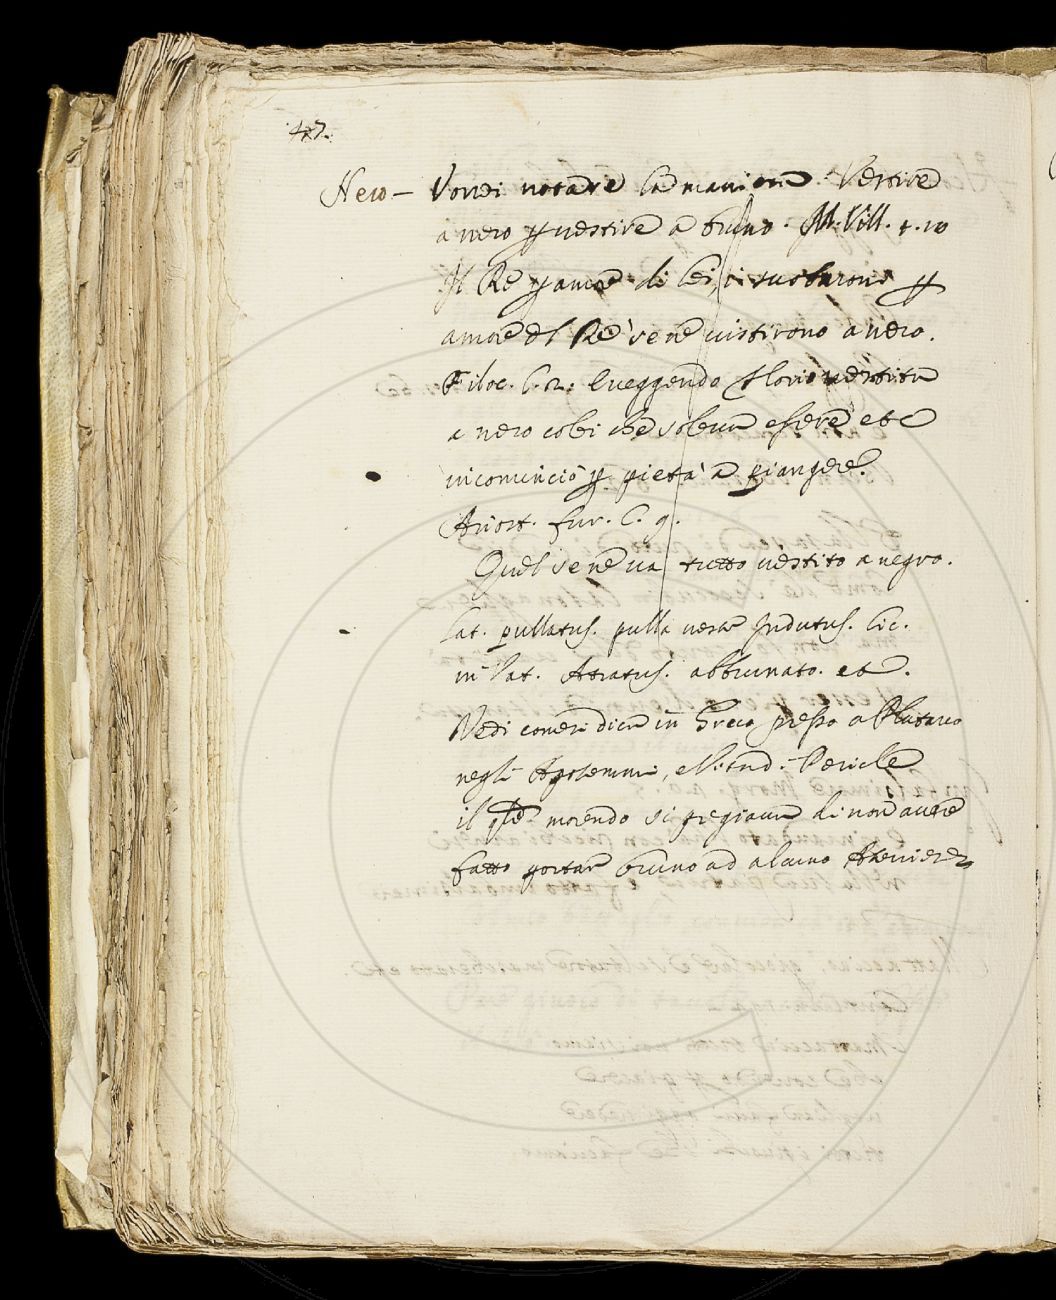 427.
Nero – Vorrei notare la maniera. Vestire
a nero p vestire a bruno. M. Vill. 1. 10
Il Re p amore di lei, ei suoi baroni p
amore del Re se ne vistirono a nero.
Filoc. l. 2. E veggendo Florio vestita
a nero colei che soleva essere etc
incominciò p pietà a piangere.
Ariost. fur. C. 9.
Quel se ne va tutto vestito a negro.
Lat. pullatus. pulla veste Indutus. Cic.
in Vat. Atratus. abbrunato. etc.
Vedi come si dica in Greco presso a Plutarco
negli Apotemmi, Pericle
il qle morendo si pregiava di non avere
fatto portar bruno ad alcuno Ateniese